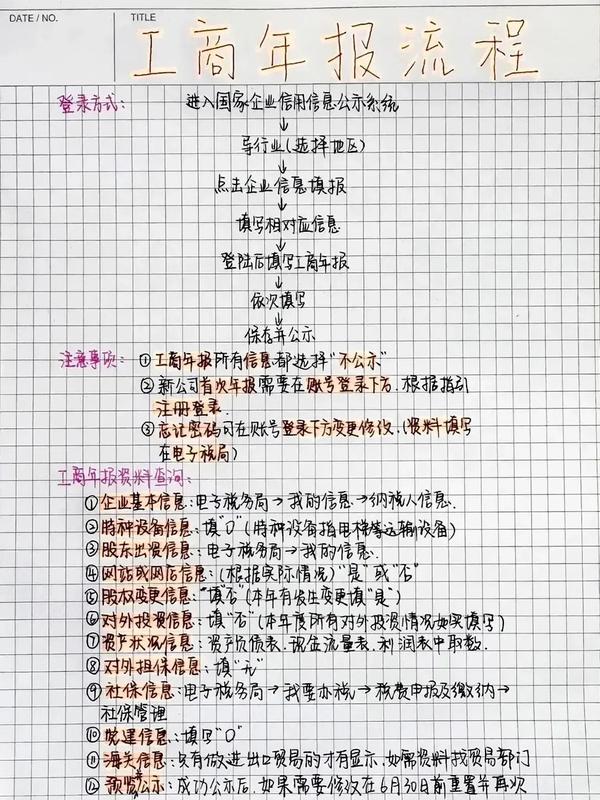 DATE / NO.
TITLE
工商年报流程
登录方式： 进入国家企业信用信息公示系统
↓
导行业(选择地区)
↓
点击企业信息填报
↓
填写相对应信息
↓
登陆后填写工商年报
↓
依次填写
↓
保存并公示
注意事项： ①工商年报所有信息都选择"不公示"
②新公司首次年报需要在账号登录下方.根据指引
注册登录.
③忘记密码可在账号登录下方变更修改.(资料填写
在电子税局)
工商年报资料查询：
①企业基本信息：电子税务局→我的信息→纳税人信息.
②特种设备信息：填"0"(特种设备指电梯等运输设备)
③股东出资信息：电子税务局→我的信息.
④网站或网店信息：(根据实际情况)"是"或"否"
⑤股权变更信息："填否"(本年有发生变更填"是")
⑥对外投资信息：填"否"(本年度所有对外投资情况如实填写)
⑦资产状况信息：资产负债表.现金流量表.利润表中取数.
⑧对外担保信息：填"无"
⑨社保信息：电子税务局→我要办税→税费申报及缴纳→
社保管理
⑩党建信息：填写"0"
⑪海关信息：只有做进出口贸易的才有显示.如需资料找贸易部门
⑫预览公示：成功公示后.如果需要修改在6月30日前重置并再次